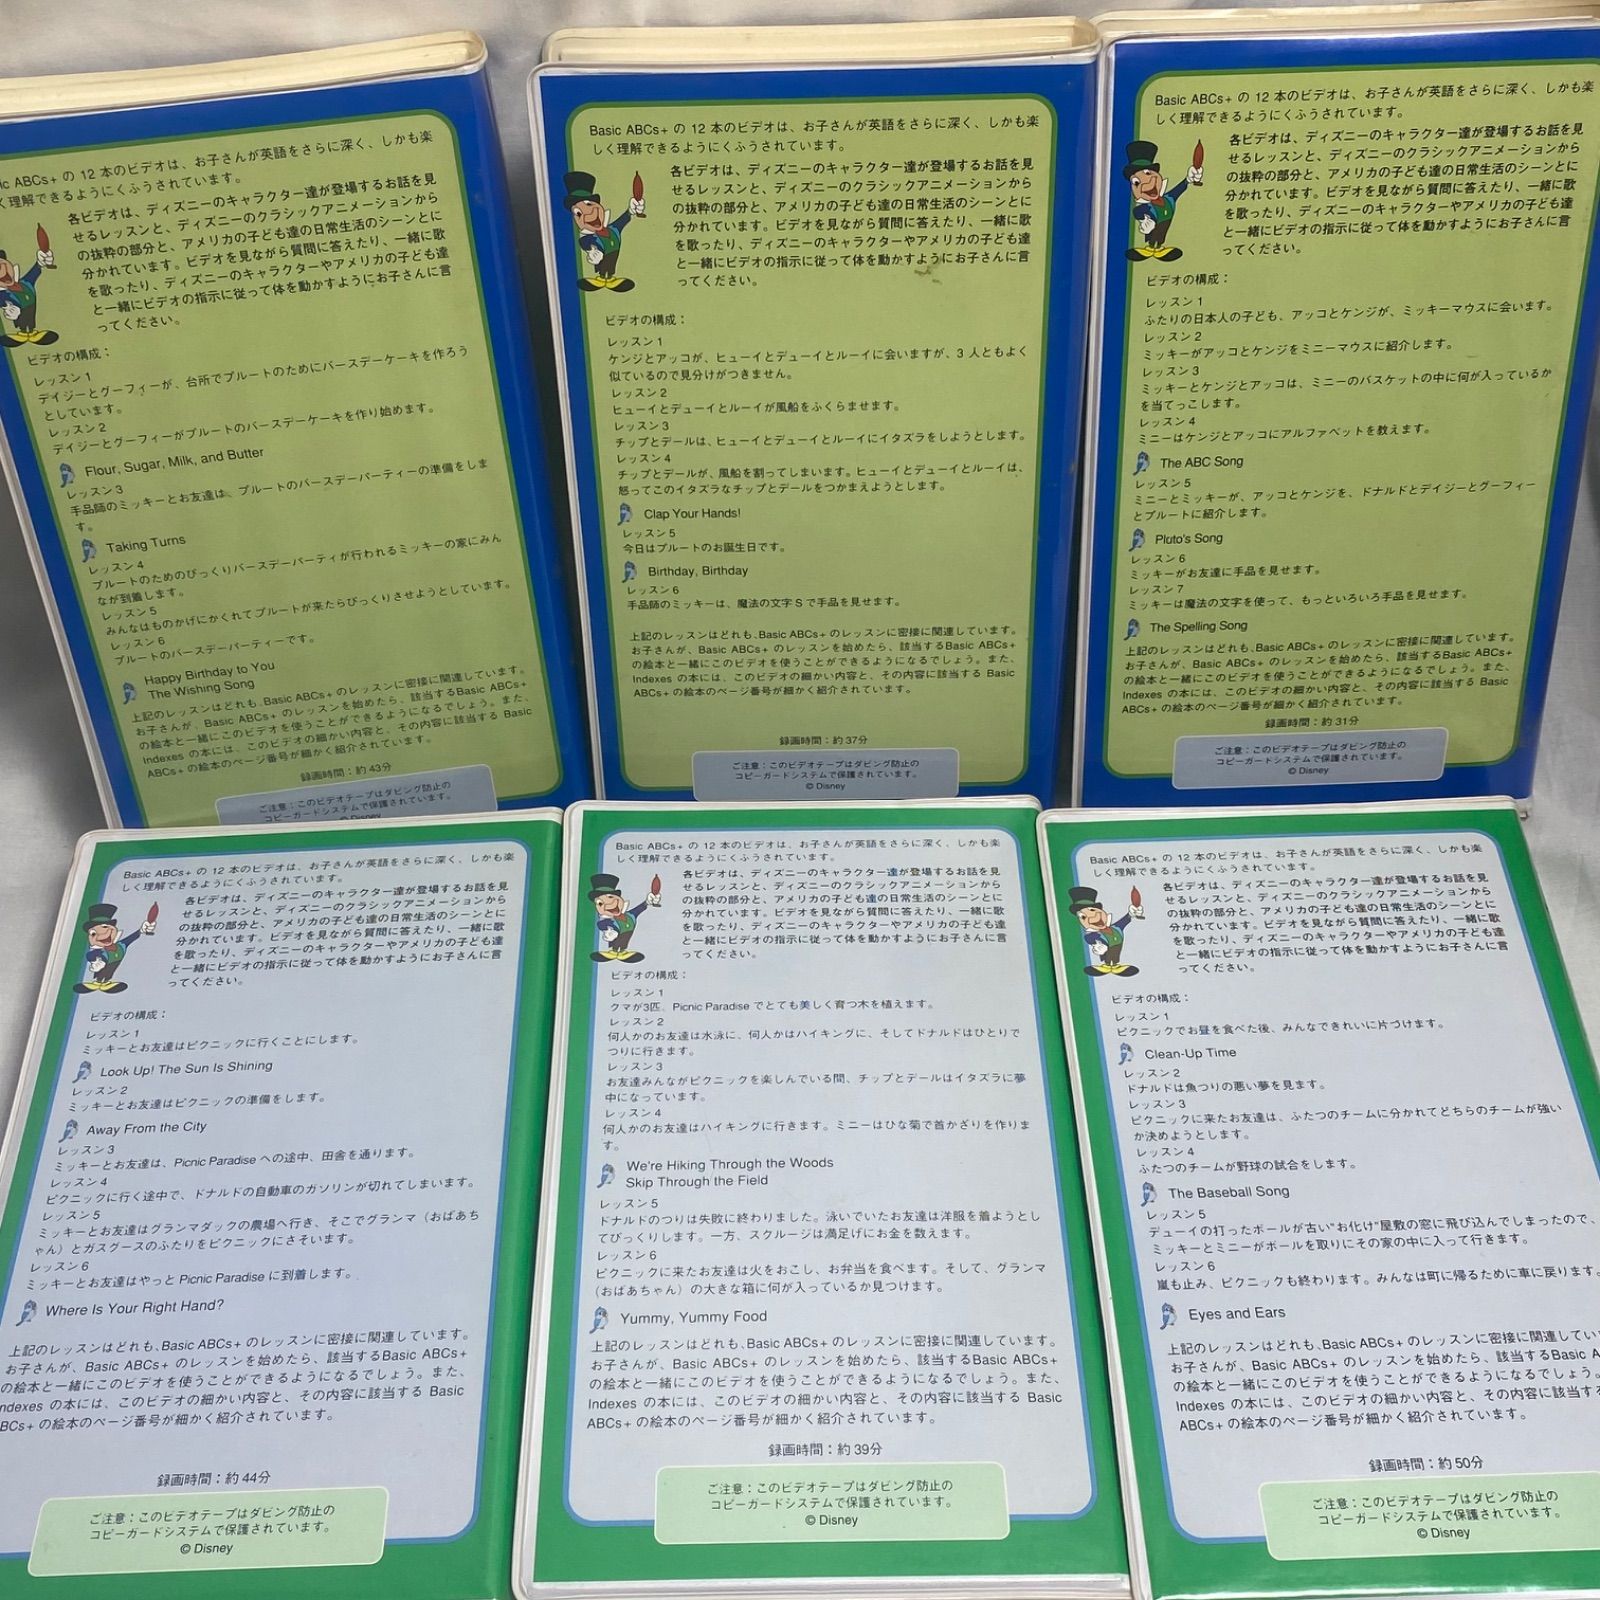 Basic ABCs+ の 12 本のビデオは、お子さんが英語をさらに深く、しかも楽
く理解できるようにくふうされています。
各ビデオは、ディズニーのキャラクター達が登場するお話を見
せるレッスンと、ディズニーのクラシックアニメーションから
の抜粋の部分と、アメリカの子ども達の日常生活のシーンとに
分かれています。ビデオを見ながら質問に答えたり、一緒に歌
を歌ったり、ディズニーのキャラクターやアメリカの子ども達
と一緒にビデオの指示に従って体を動かすようにお子さんに言
ってください。
ビデオの構成：
レッスン1
デイジーとグーフィーが、台所でプルートのためにバースデーケーキを作ろう
としています。
レッスン2
デイジーとグーフィーがプルートのバースデーケーキを作り始めます。
Flour, Sugar, Milk, and Butter
レッスン3
手品師のミッキーとお友達は、プルートのバースデーパーティーの準備をしま
す。
Taking Turns
レッスン4
プルートのためのびっくりバースデーパーティが行われるミッキーの家にみん
なが到着します。
レッスン5
みんなはものかげにかくれてプルートが来たらびっくりさせようとしています。
レッスン6
プルートのバースデーパーティーです。
Happy Birthday to You
The Wishing Song
上記のレッスンはどれも、Basic ABCs+ のレッスンに密接に関連しています。
お子さんが、Basic ABCs+ のレッスンを始めたら、該当するBasic ABCs+
の絵本と一緒にこのビデオを使うことができるようになるでしょう。また、
Indexes の本には、このビデオの細かい内容と、その内容に該当する Basic
ABCs+ の絵本のページ番号が細かく紹介されています。
録画時間：約43分
ご注意：このビデオテープはダビング防止の
コピーガードシステムで保護されています。
© Disney
Basic ABCs+ の 12 本のビデオは、お子さんが英語をさらに深く、しかも楽
しく理解できるようにくふうされています。
各ビデオは、ディズニーのキャラクター達が登場するお話を見
せるレッスンと、ディズニーのクラシックアニメーションから
の抜粋の部分と、アメリカの子ども達の日常生活のシーンとに
分かれています。ビデオを見ながら質問に答えたり、一緒に歌
を歌ったり、ディズニーのキャラクターやアメリカの子ども達
と一緒にビデオの指示に従って体を動かすようにお子さんに言
ってください。
ビデオの構成：
レッスン1
ケンジとアッコが、ヒューイとデューイとルーイに会いますが、3 人ともよく
似ているので見分けがつきません。
レッスン2
ヒューイとデューイとルーイが風船をふくらませます。
レッスン3
チップとデールは、ヒューイとデューイとルーイにイタズラをしようとします。
レッスン4
チップとデールが、風船を割ってしまいます。ヒューイとデューイとルーイは、
怒ってこのイタズラなチップとデールをつかまえようとします。
Clap Your Hands!
レッスン5
今日はプルートのお誕生日です。
Birthday, Birthday
レッスン6
手品師のミッキーは、魔法の文字 S で手品を見せます。
上記のレッスンはどれも、Basic ABCs+ のレッスンに密接に関連しています。
お子さんが、Basic ABCs+ のレッスンを始めたら、該当するBasic ABCs+
の絵本と一緒にこのビデオを使うことができるようになるでしょう。また、
Indexes の本には、このビデオの細かい内容と、その内容に該当する Basic
ABCs+ の絵本のページ番号が細かく紹介されています。
録画時間：約37分
ご注意：このビデオテープはダビング防止の
コピーガードシステムで保護されています。
© Disney
Basic ABCs+ の 12 本のビデオは、お子さんが英語をさらに深く、しかも楽
しく理解できるようにくふうされています。
各ビデオは、ディズニーのキャラクター達が登場するお話を見
せるレッスンと、ディズニーのクラシックアニメーションから
の抜粋の部分と、アメリカの子ども達の日常生活のシーンとに
分かれています。ビデオを見ながら質問に答えたり、一緒に歌
を歌ったり、ディズニーのキャラクターやアメリカの子ども達
と一緒にビデオの指示に従って体を動かすようにお子さんに言
ってください。
ビデオの構成：
レッスン1
ふたりの日本人の子ども、アッコとケンジが、ミッキーマウスに会います。
レッスン2
ミッキーがアッコとケンジをミニーマウスに紹介します。
レッスン3
ミッキーとケンジとアッコは、ミニーのバスケットの中に何が入っているか
を当てっこします。
レッスン4
ミニーはケンジとアッコにアルファベットを教えます。
The ABC Song
レッスン5
ミニーとミッキーが、アッコとケンジを、ドナルドとデイジーとグーフィー
とプルートに紹介します。
Pluto's Song
レッスン6
ミッキーがお友達に手品を見せます。
レッスン7
ミッキーは魔法の文字を使って、もっといろいろ手品を見せます。
The Spelling Song
上記のレッスンはどれも、Basic ABCs+ のレッスンに密接に関連しています。
お子さんが、Basic ABCs+ のレッスンを始めたら、該当するBasic ABCs+
の絵本と一緒にこのビデオを使うことができるようになるでしょう。また、
Indexes の本には、このビデオの細かい内容と、その内容に該当する Basic
ABCs+ の絵本のページ番号が細かく紹介されています。
録画時間：約31分
ご注意：このビデオテープはダビング防止の
コピーガードシステムで保護されています。
© Disney
Basic ABCs+ の 12 本のビデオは、お子さんが英語をさらに深く、しかも楽
しく理解できるようにくふうされています。
各ビデオは、ディズニーのキャラクター達が登場するお話を見
せるレッスンと、ディズニーのクラシックアニメーションから
の抜粋の部分と、アメリカの子ども達の日常生活のシーンとに
分かれています。ビデオを見ながら質問に答えたり、一緒に歌
を歌ったり、ディズニーのキャラクターやアメリカの子ども達
と一緒にビデオの指示に従って体を動かすようにお子さんに言
ってください。
ビデオの構成：
レッスン1
ミッキーとお友達はピクニックに行くことにします。
Look Up! The Sun Is Shining
レッスン2
ミッキーとお友達はピクニックの準備をします。
Away From the City
レッスン3
ミッキーとお友達は、Picnic Paradise への途中、田舎を通ります。
レッスン4
ピクニックに行く途中で、ドナルドの自動車のガソリンが切れてしまいます。
レッスン5
ミッキーとお友達はグランマダックの農場へ行き、そこでグランマ（おばあち
ゃん）とガスグースのふたりをピクニックにさそいます。
レッスン6
ミッキーとお友達はやっと Picnic Paradise に到着します。
Where Is Your Right Hand?
上記のレッスンはどれも、Basic ABCs+ のレッスンに密接に関連しています。
お子さんが、Basic ABCs+ のレッスンを始めたら、該当するBasic ABCs+
の絵本と一緒にこのビデオを使うことができるようになるでしょう。また、
Indexes の本には、このビデオの細かい内容と、その内容に該当する Basic
ABCs+ の絵本のページ番号が細かく紹介されています。
録画時間：約44分
ご注意：このビデオテープはダビング防止の
コピーガードシステムで保護されています。
© Disney
Basic ABCs+ の 12 本のビデオは、お子さんが英語をさらに深く、しかも楽
しく理解できるようにくふうされています。
各ビデオは、ディズニーのキャラクター達が登場するお話を見
せるレッスンと、ディズニーのクラシックアニメーションから
の抜粋の部分と、アメリカの子ども達の日常生活のシーンとに
分かれています。ビデオを見ながら質問に答えたり、一緒に歌
を歌ったり、ディズニーのキャラクターやアメリカの子ども達
と一緒にビデオの指示に従って体を動かすようにお子さんに言
ってください。
ビデオの構成：
レッスン1
クマが3匹、Picnic Paradise でとても美しく育つ木を植えます。
レッスン2
何人かのお友達は水泳に、何人かはハイキングに、そしてドナルドはひとりで
つりに行きます。
レッスン3
お友達みんながピクニックを楽しんでいる間、チップとデールはイタズラに夢
中になっています。
レッスン4
何人かのお友達はハイキングに行きます。ミニーはひな菊で首かざりを作りま
す。
We're Hiking Through the Woods
Skip Through the Field
レッスン5
ドナルドのつりは失敗に終わりました。泳いでいたお友達は洋服を着ようとし
てびっくりします。一方、スクルージは満足げにお金を数えます。
レッスン6
ピクニックに来たお友達は火をおこし、お弁当を食べます。そして、グランマ
（おばあちゃん）の大きな箱に何が入っているか見つけます。
Yummy, Yummy Food
上記のレッスンはどれも、Basic ABCs+ のレッスンに密接に関連しています。
お子さんが、Basic ABCs+ のレッスンを始めたら、該当するBasic ABCs+
の絵本と一緒にこのビデオを使うことができるようになるでしょう。また、
Indexes の本には、このビデオの細かい内容と、その内容に該当する Basic
ABCs+ の絵本のページ番号が細かく紹介されています。
録画時間：約39分
ご注意：このビデオテープはダビング防止の
コピーガードシステムで保護されています。
© Disney
Basic ABCs+ の 12 本のビデオは、お子さんが英語をさらに深く、しかも楽
しく理解できるようにくふうされています。
各ビデオは、ディズニーのキャラクター達が登場するお話を見
せるレッスンと、ディズニーのクラシックアニメーションから
の抜粋の部分と、アメリカの子ども達の日常生活のシーンとに
分かれています。ビデオを見ながら質問に答えたり、一緒に歌
を歌ったり、ディズニーのキャラクターやアメリカの子ども達
と一緒にビデオの指示に従って体を動かすようにお子さんに言
ってください。
ビデオの構成：
レッスン1
ピクニックでお昼を食べた後、みんなできれいに片づけます。
Clean-Up Time
レッスン2
ドナルドは魚つりの悪い夢を見ます。
レッスン3
ピクニックに来たお友達は、ふたつのチームに分かれてどちらのチームが強い
か決めようとします。
レッスン4
ふたつのチームが野球の試合をします。
The Baseball Song
レッスン5
デューイの打ったボールが古い"お化け"屋敷の窓に飛び込んでしまったので、
ミッキーとミニーがボールを取りにその家の中に入って行きます。
レッスン6
嵐も止み、ピクニックも終わります。みんなは町に帰るために車に戻ります。
Eyes and Ears
上記のレッスンはどれも、Basic ABCs+ のレッスンに密接に関連してい
お子さんが、Basic ABCs+ のレッスンを始めたら、該当するBasic A
の絵本と一緒にこのビデオを使うことができるようになるでしょう。
Indexes の本には、このビデオの細かい内容と、その内容に該当する
ABCs+ の絵本のページ番号が細かく紹介されています。
録画時間：約50分
ご注意：このビデオテープはダビング防止の
コピーガードシステムで保護されています。
© Disney